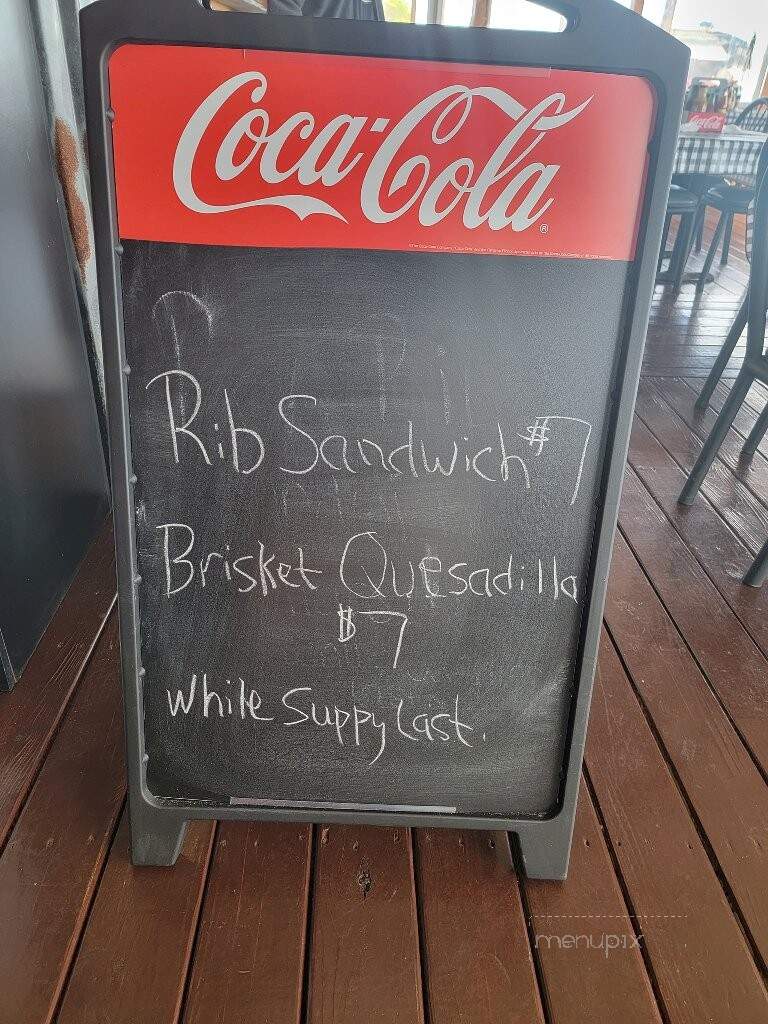 Coca-Cola
Rib Sandwich $7
Brisket Quesadilla
$7
While Suppy Last.
menupix